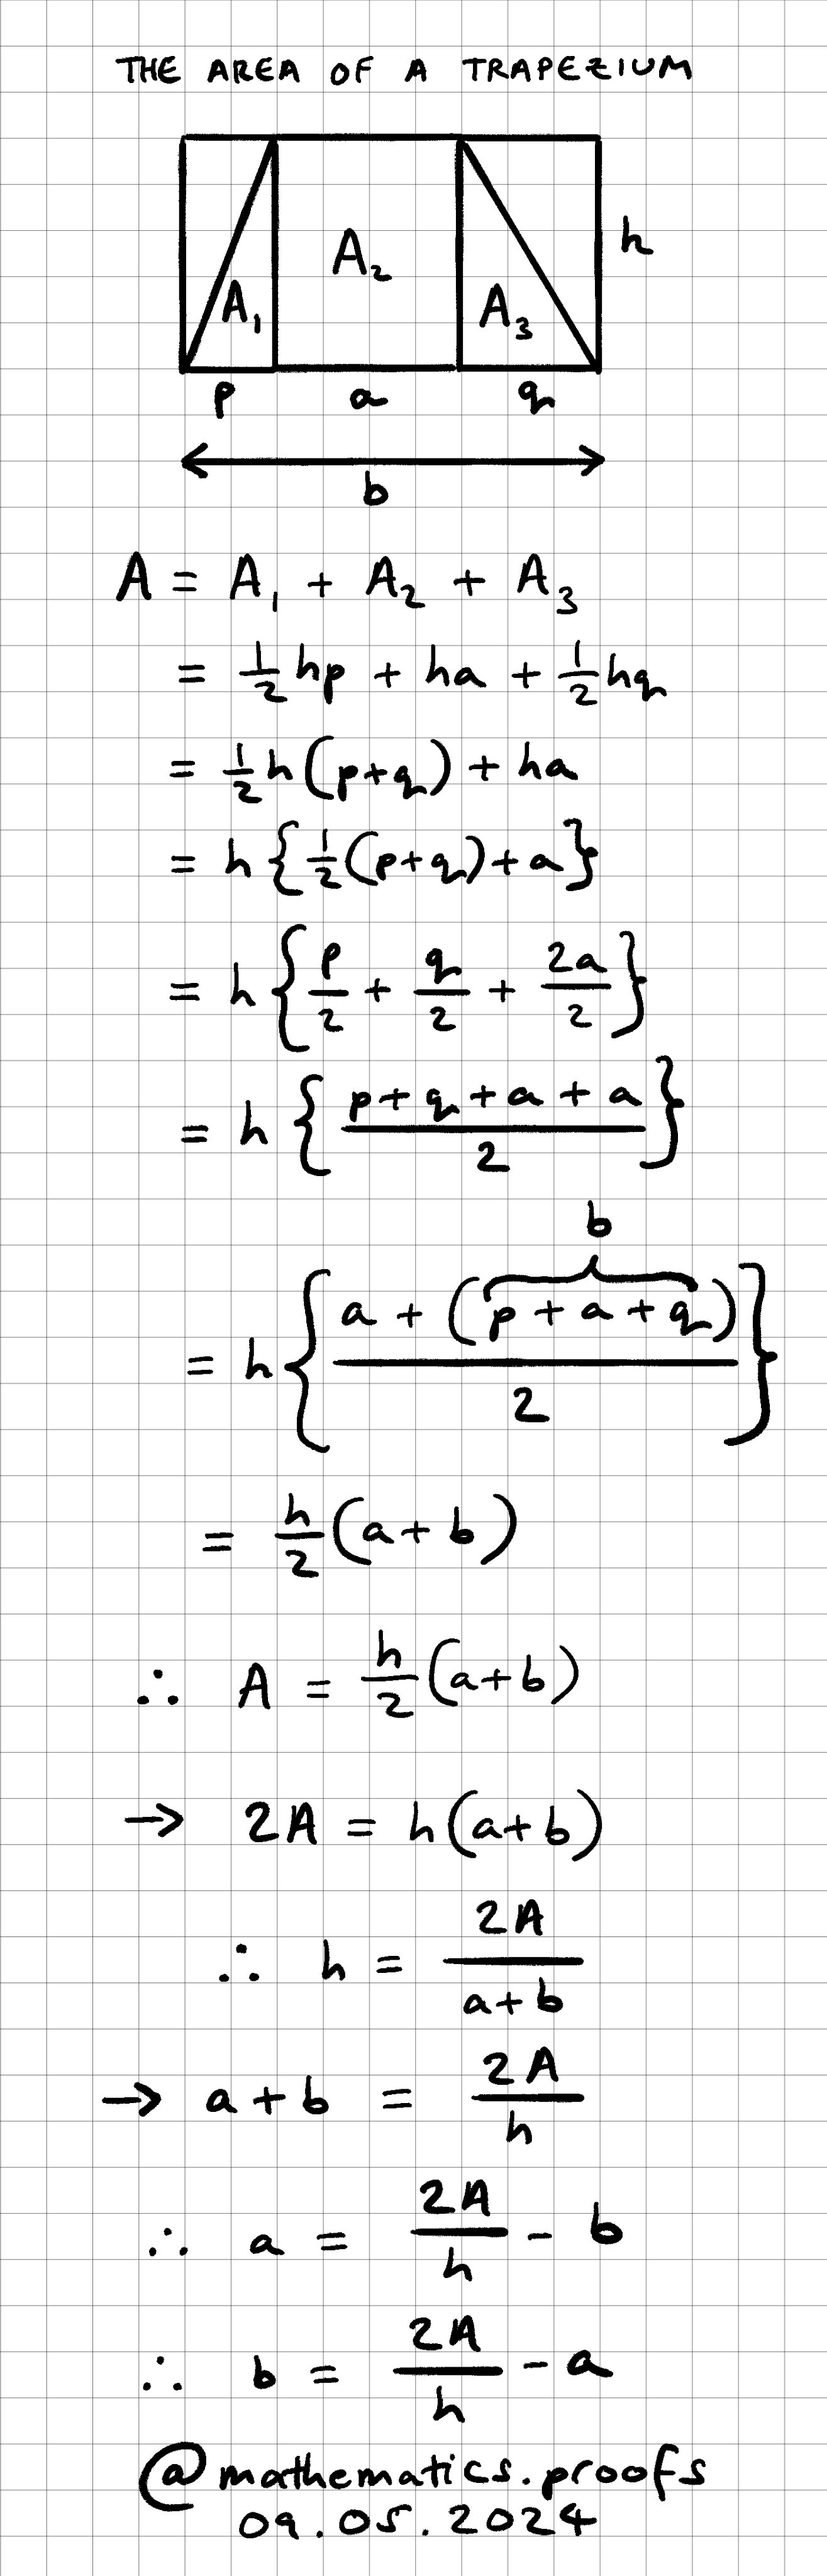 THE AREA OF A TRAPEZIUM
A₁ A₂ A₃ h
p a q
b
A = A₁ + A₂ + A₃
= ½hp + ha + ½hq
= ½h(p+q) + ha
= h{½(p+q)+a}
= h{p/2 + q/2 + 2a/2}
= h{(p+q+a+a)/2}
b
= h{(a + (p+a+q))/2}
= h/2(a+b)
∴ A = h/2(a+b)
→ 2A = h(a+b)
∴ h = 2A/(a+b)
→ a+b = 2A/h
∴ a = 2A/h - b
∴ b = 2A/h - a
@mathematics.proofs
09.05.2024